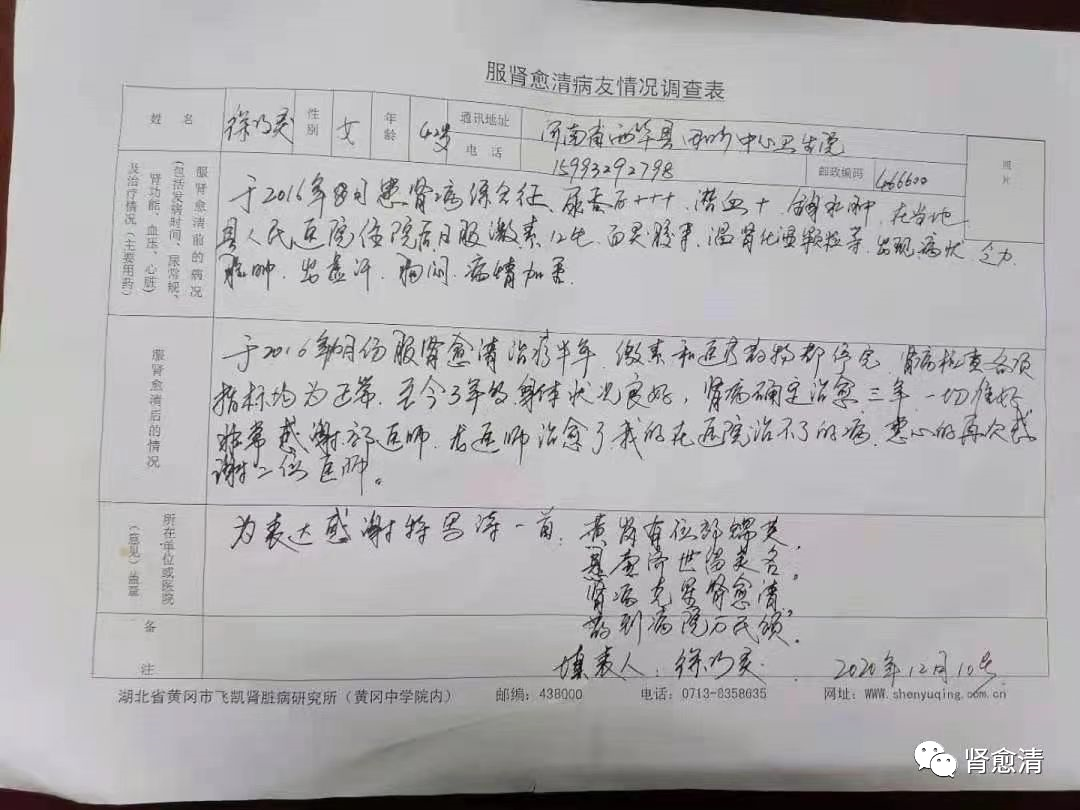 服肾愈清病友情况调查表
姓 名 徐 灵 性别 女 年龄 42岁 通讯地址 河南省西华县 中心卫生院
电 话 15993292798 邮政编码 466600
照片
服肾愈清前的病况(包括发病时间、尿常规、肾功能、血压、心脏)及治疗情况(主要用药)
于2016年8月患肾病综合征、尿蛋白+++、潜血+、 水肿、在当地
县人民医院住院后月服激素12 、百令胶囊、温肾化湿颗粒等、出现病状 乏力、
脸肿、出虚汗、胸闷、病情加重、
服肾愈清后的情况
于2016年 月份服肾愈清治疗半年、激素和医疗药物都停完、肾病检查各项
指标均为正常、至今3年多身体状况良好,肾病确定治愈三年、一切 好
非常感谢 医师、 医师治愈了我的在医院治不了的病、 心的再次感
谢二位医师。
所在单位或医院(意见)盖章
为表达感谢特写诗一首、黄 有位 、
济世 名。
肾病克星肾愈清,
药到病 万民颂。
备 注
填表人:徐 灵. 2020年12月10号
湖北省黄冈市飞凯肾脏病研究所(黄冈中学院内) 邮编:438000 电话:0713-8358635 网址:www.shenyuqing.com.cn
肾愈清